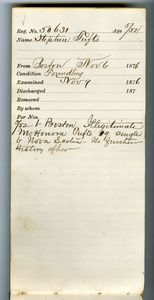 Reg. No. 50631 Age 3/52
Name Stephen Tufts
From Boston Nov 6 1876
Condition Foundling
Examined Nov 9 1876
Discharged 187
Removed
By whom
For Nos.
Boston Illegitimate
Mo Honora Tufts 19 single
b Nova Scotia - No further
history of her